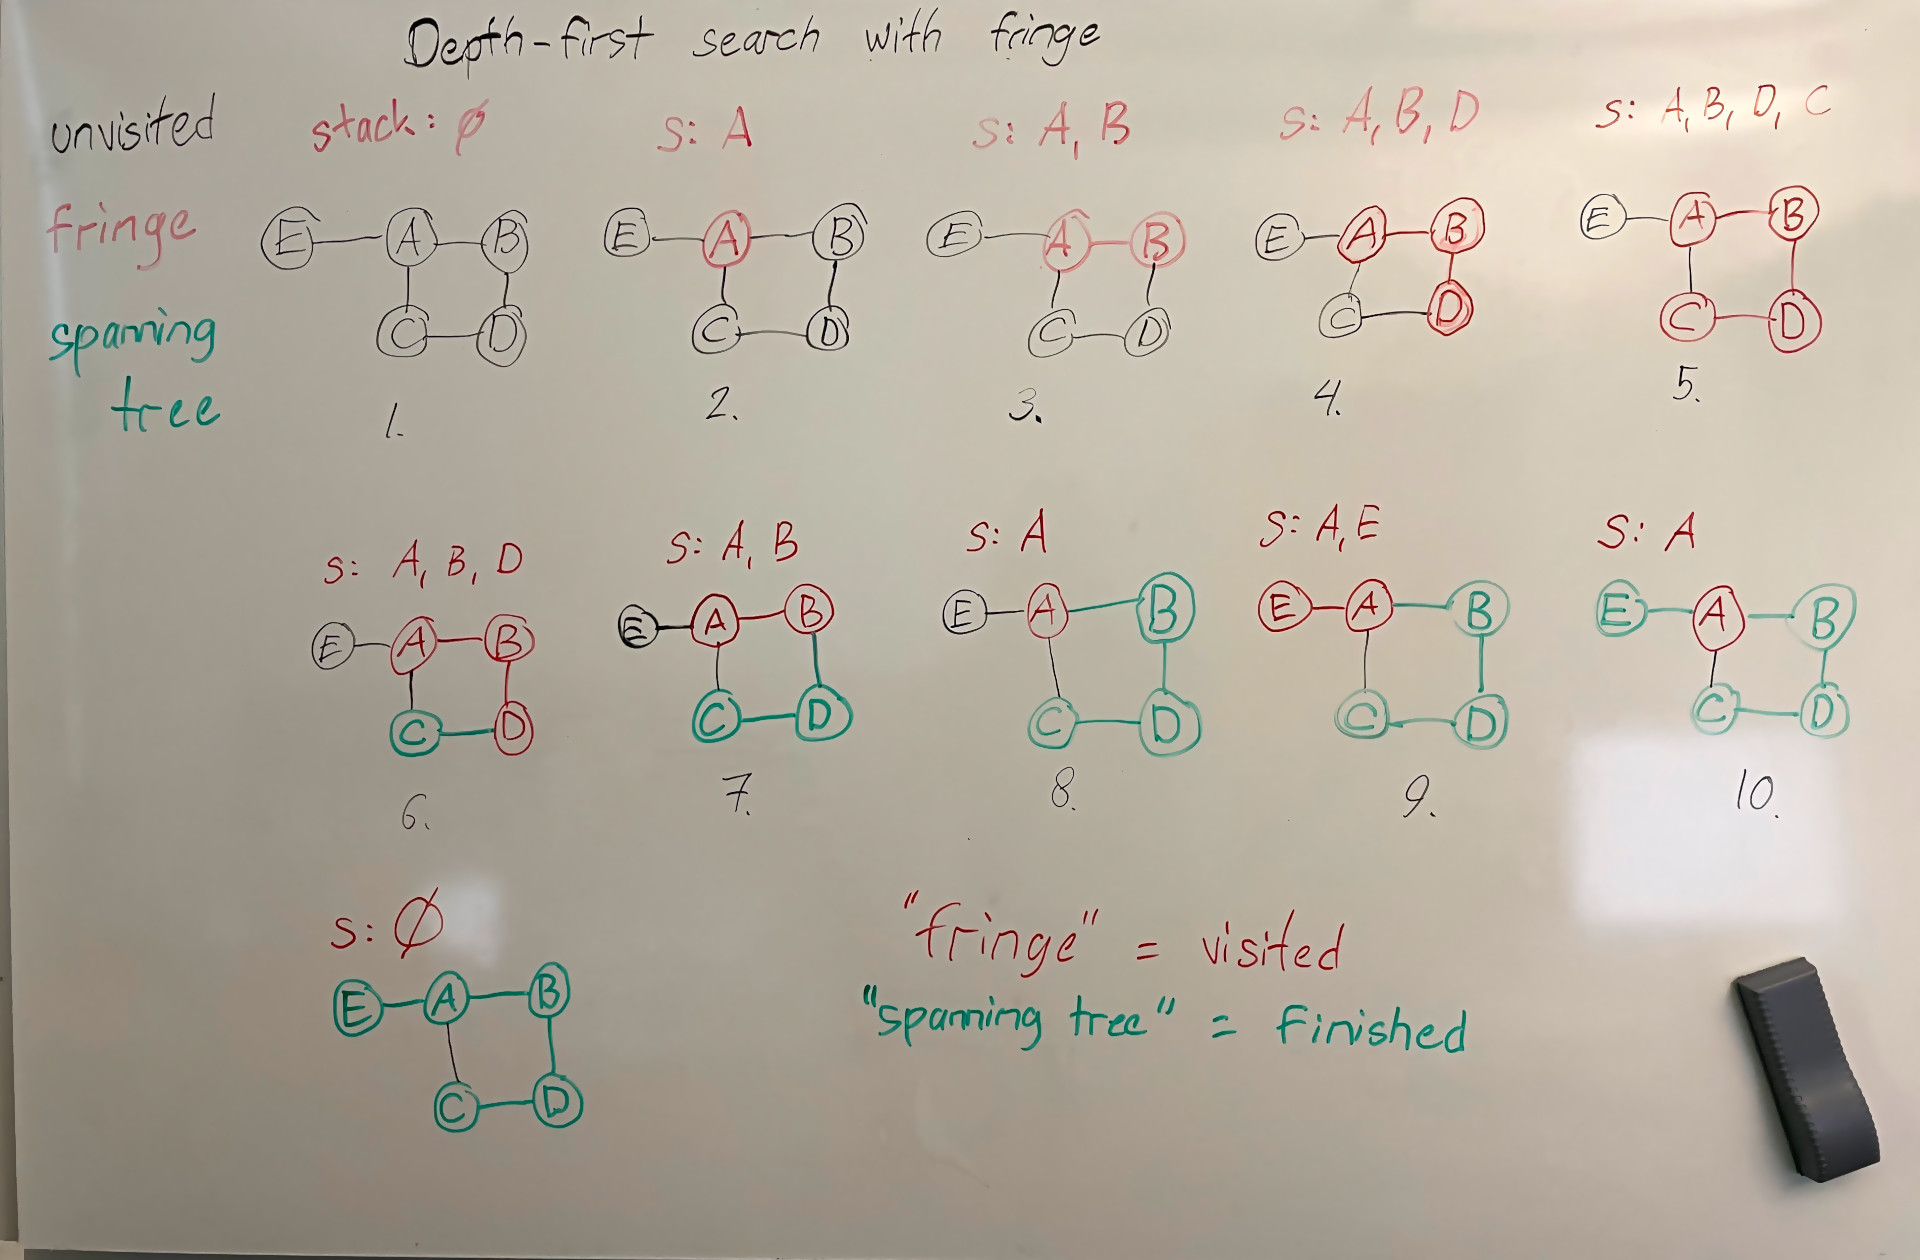 Depth-first search with fringe
unvisited
fringe
spanning
tree
stack: ∅
E A B
C D
1.
S: A
E A B
C D
2.
S: A, B
E A B
C D
3.
S: A, B, D
E A B
C D
4.
S: A, B, D, C
E A B
C D
5.
S: A, B, D
E A B
C D
6.
S: A, B
E A B
C D
7.
S: A
E A B
C D
8.
S: A, E
E A B
C D
9.
S: A
E A B
C D
10.
S: ∅
E A B
C D
"fringe" = visited
"spanning tree" = finished